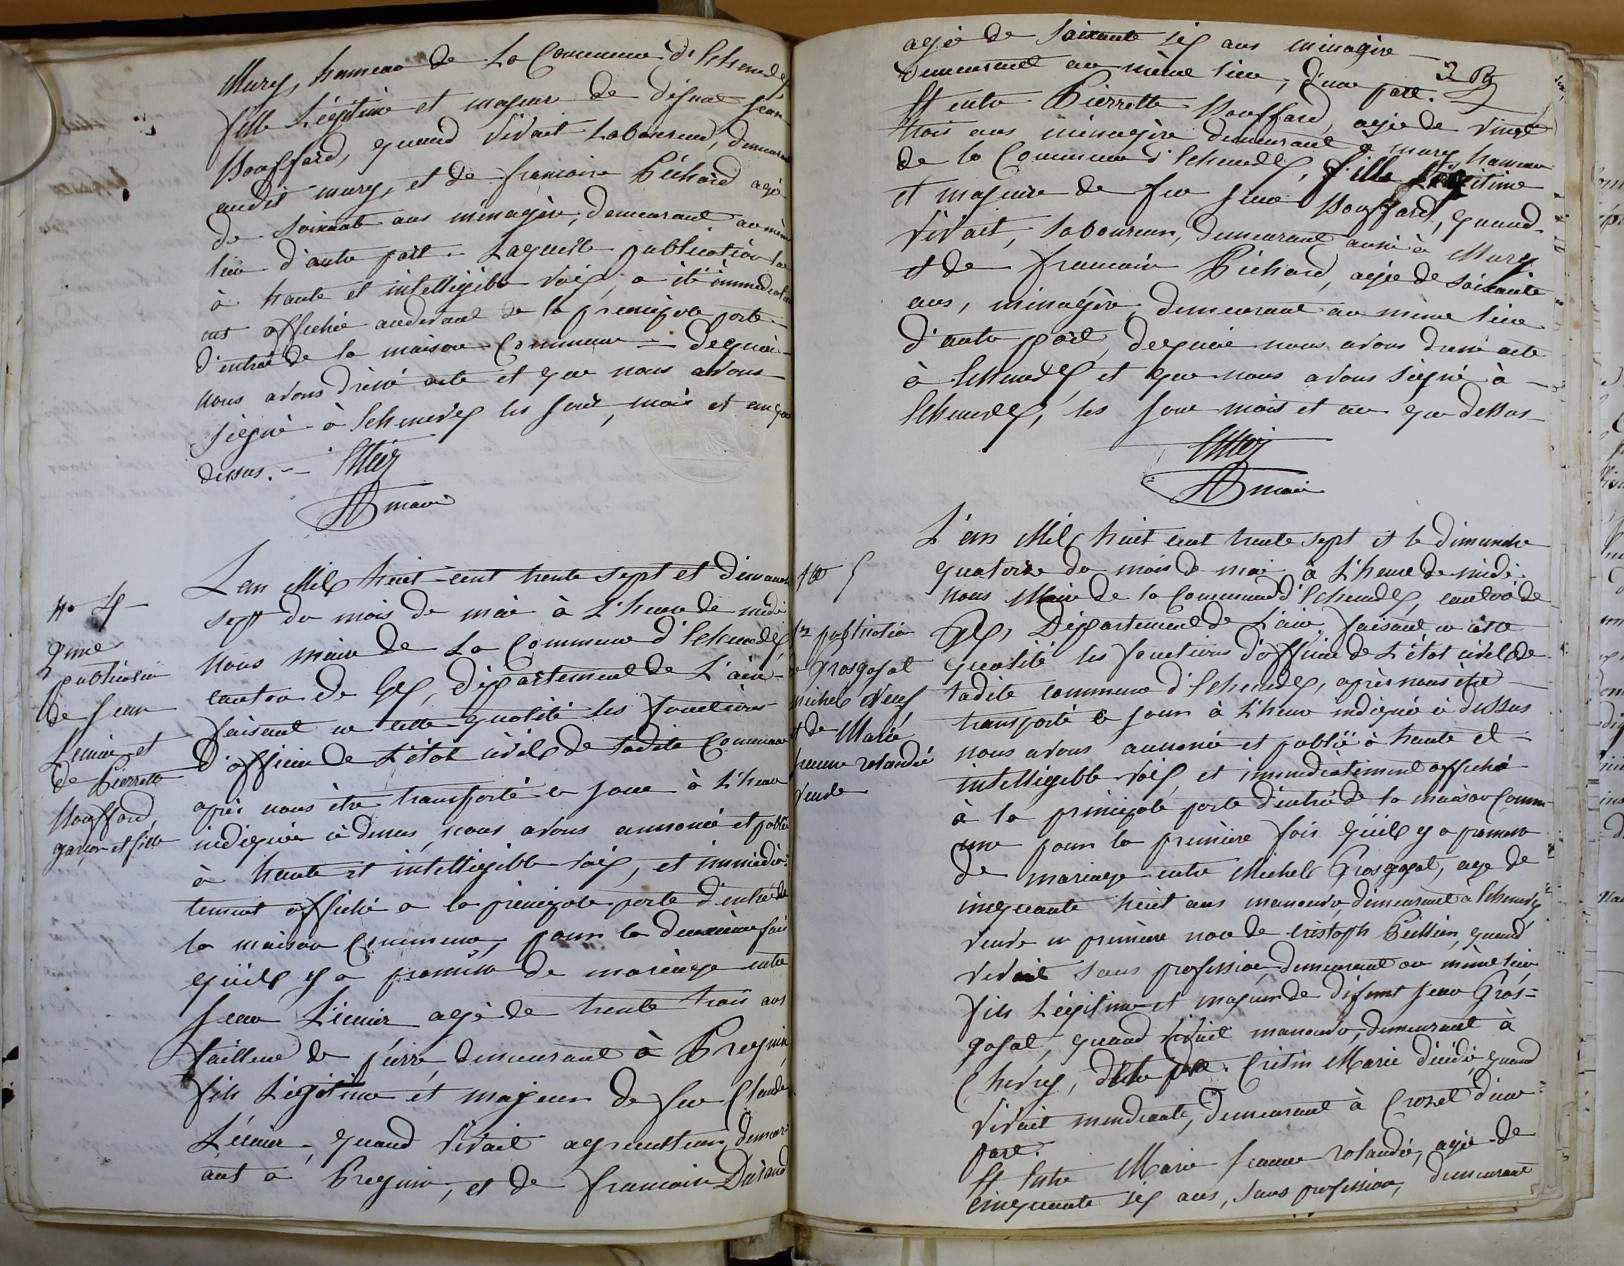 Mury, hameau de La Commune d'Echenevex
fille Légitime et majeure de défunt Jean
Bouffard, quand vivait Laboureur, demeurant
audit mury, et de francoise Pichard agée
de soixante ans ménagère, demeurant au même
lieu d'autre part. Laquelle publication lue
à haute et intelligible voix, a été immediatem
ent affiché audevant de la principale porte
d'entrée de la maison Commune — dequoi
nous avons dressé acte et que nous avons
signé à Echenevex les jour, mois et an que
dessus.
maire
No 4
2me
publication
de Jean
Lécuier et
de Pierrette
Bouffard,
garçon et fille
L'an Mil huit cent trente sept et dimanche
sept du mois de mai à L'heure de midi
Nous maire de La Commune d'Echenevex,
canton de Gex, département de L'ain
faisant en cette qualité les fonctions
d'officier de L'état civil de ladite Commune
après nous être transporté ce jour à L'heure
indiquée ci dessus, nous avons annoncé et publié
à haute et intelligible voix, et immédia-
tement affiché a la principale porte d'entrée de
la maison Commune, pour la deuxième fois
qu'il y a promesse de mariage entre
Jean Lécuier agé de trente trois ans
tailleur de pierre, demeurant à Pregnin,
fils Légitime et majeur de feu Claude
Lécuier, quand vivait agriculteur, demeur-
ant a Pregnin, et de francoise Durand
agée de soixante six ans ménagère
demeurant au même lieu, d'une part.
Et entre Pierrette Bouffard, agée de vingt
trois ans ménagère demeurant à mury hameau
de la Commune d'Echenevex, fille Légitime
et majeure de feu Jean Bouffard, quand
vivait, laboureur, demeurant aussi à Mury
et de francoise Pichard, agée de soixante
ans, ménagère demeurant au même lieu
d'autre part, dequoi nous avons dressé acte
à Echenevex et que nous avons signé à
Echenevex, les jour mois et an que dessus
maire
No 5
1re publication
de Grosgojat
Michel veuf
et de Marie
jeanne rolandée
veuve
L'an Mil huit cent trente sept et le dimanche
quatorze du mois de mai à L'heure de midi
nous Maire de la Commune d'Echenevex, canton de
Gex, Département de L'ain faisant en cette
qualité les fonctions d'officier de L'état civil de
ladite commune d'Echenevex, après nous être
transporté ce jour à L'heure indiquée ci dessus
nous avons annoncé et publié à haute et
intelligible voix, et immédiatement affiché
à la principale porte d'entrée de la maison Comm-
une pour la première fois qu'il y a promesse
de mariage entre Michel Grosgojat, age de
cinquante huit ans manouvr demeurant à Echenevex
veuve en première noce de Cristoph quand
vivait sans profession demeurant au même lieu
fils Légitime et majeur de défunt Jean Gros-
gojat, quand vivait manouvr, demeurant à
Chevry, Critin Marie décédé, quand
vivait mendiante, demeurant à Crozet d'une
part.
Et Entre Marie Jeanne rolandée, agée de
cinquante six ans, sans profession, demeurant